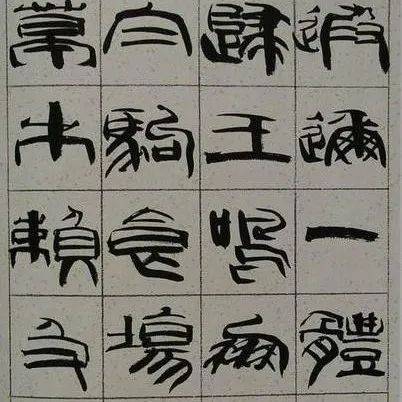 遐邇一體
歸王鳴鳳
白駒食場
草木賴及